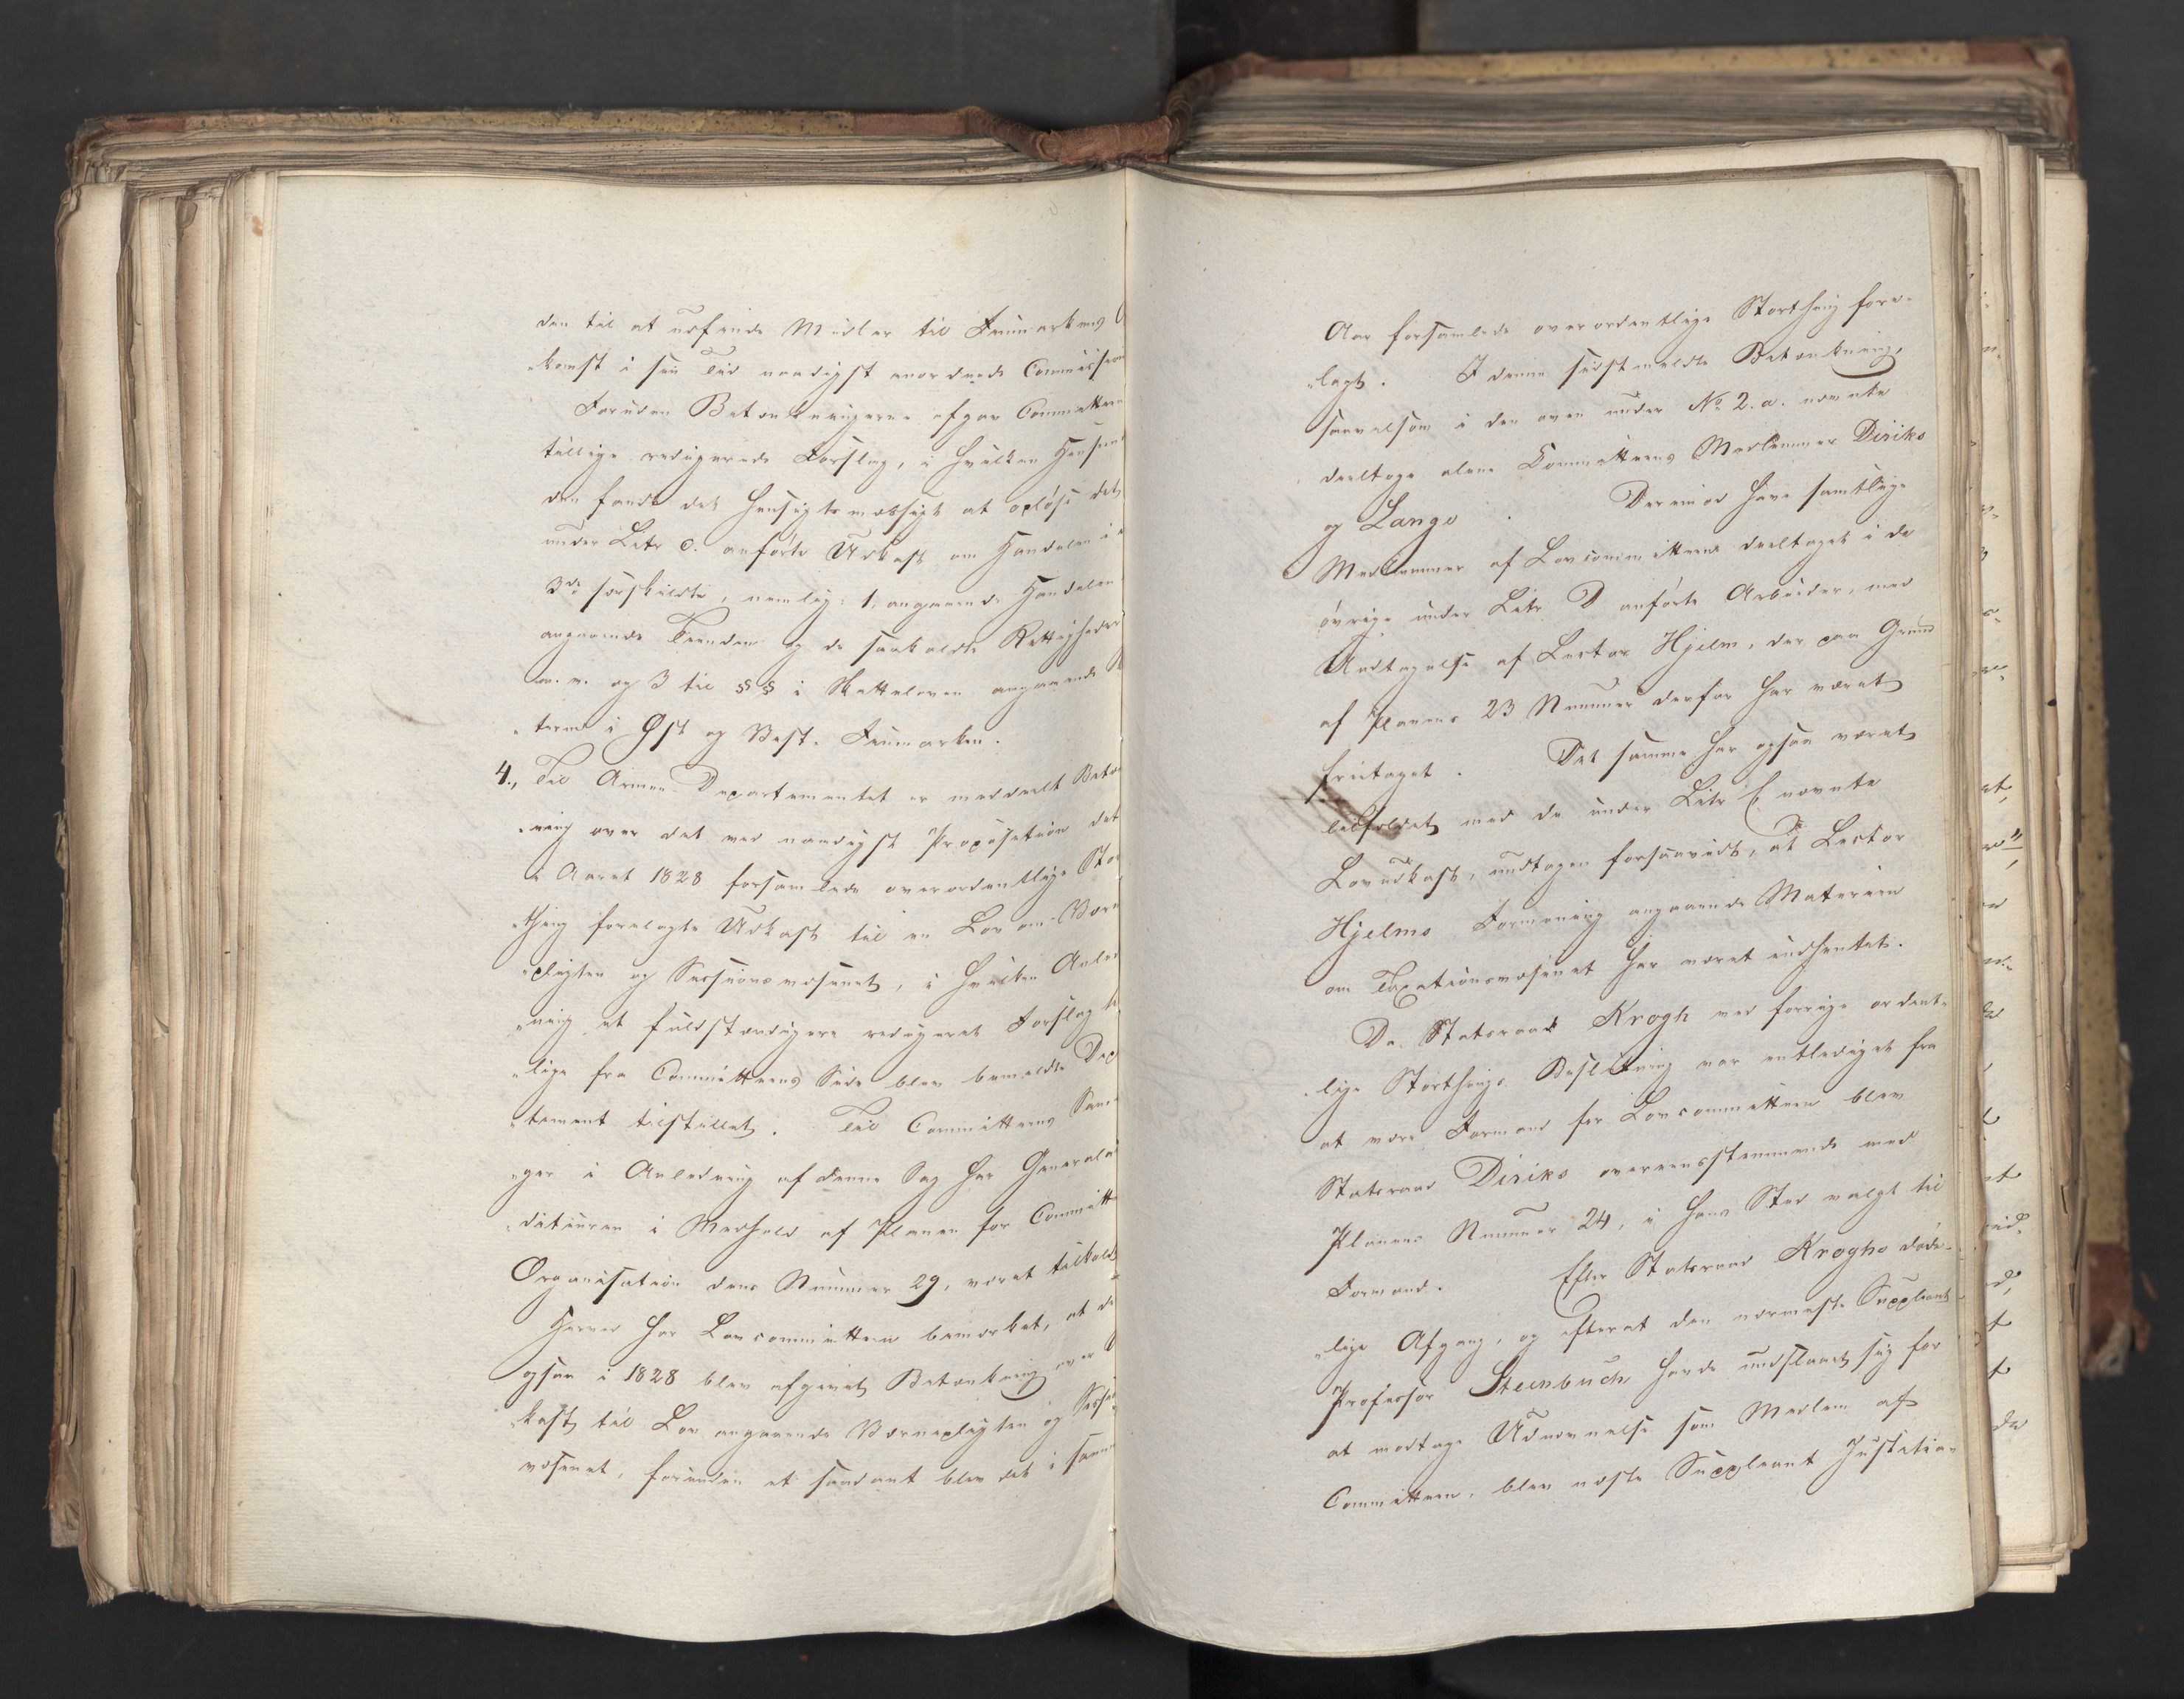 den til at udfinde Midler til Finmarkens
"komst i sin Tid naadigst anordnede Commission
Foruden Betænkningerne afgav Committeen
tillige redigerede Forslag, i hvilken Henseende
den fandt det hensigtsmæssigt at opløse det
under Litr c. anførte Udkast om Handelen i
3de særskildte, nemlig: 1, angaaende Handelen
angaaende Tienden og de saakaldte Rettigheder
m. v. og 3 til §§ i Skatteloven angaaende
"terne i Øst og Vest-Finmarken.
4., Til Armee-Departementet er meddeelt Betæn
"ning over det ved naadigst Proposition det
i Aaret 1828 forsamlede overordentlige Stor
"thing forelagte Udkast til en Lov om Værne
"pligten og Sessionsvæsenet, i hvilken Anled
"ning et fuldstændigere redigeret Forslag til
"lige fra Committeens Side blev bemeldte Depar
"tement tilstillet. Til Committeens
"ger i Anledning af denne Sag har Generalau
"diteuren i Medhold af Planen for Committeens
Organisation dens Nummer 29, været tilkaldt
Herved har Lovcommitteen bemærket, at der
ogsaa i 1828 blev afgivet Betænkning over
"kast til Lov angaaende Værnepligten og Sessions
væsenet, forinden et saadant blev det i samme
Aar forsamlede overordentlige Storthing fore-
"lagt. I denne sidstmeldte Betænkning,
saavelsom i den oven under No 2. a. nævnte
deeltoge alene Committeens Medlemmer Diriks
og Lange. Derimod have samtlige
Medlemmer af Lovcommitteen deeltaget i de
øvrige under Litr D anførte Arbeider, med
Undtagelse af Lector Hjelm, der paa Grund
af Planens 23 Nummer derfor har været
fritaget. Det samme har ogsaa været
Tilfældet med de under Litr E nævnte
Lovudkast, undtagen forsaavidt, at Lector
Hjelms Formening angaaende Materien
om Taxationsvæsenet har været indhentet.
Da Statsraad Krogh ved forrige ordent-
"lige Storthings Beslutning var entlediget fra
at være Formand for Lovcommitteen blev
Statsraad Diriks overeensstemmende med
Planens Nummer 24, i hans Sted valgt til
Formand. Efter Statsraad Kroghs døde-
"lige Afgang, og efterat den nærmeste Suppleant
Professor Steenbuch havde undslaaet sig for
at modtage Udnævnelse som Medlem af
Committeen, blev næste Suppleant Justitia-